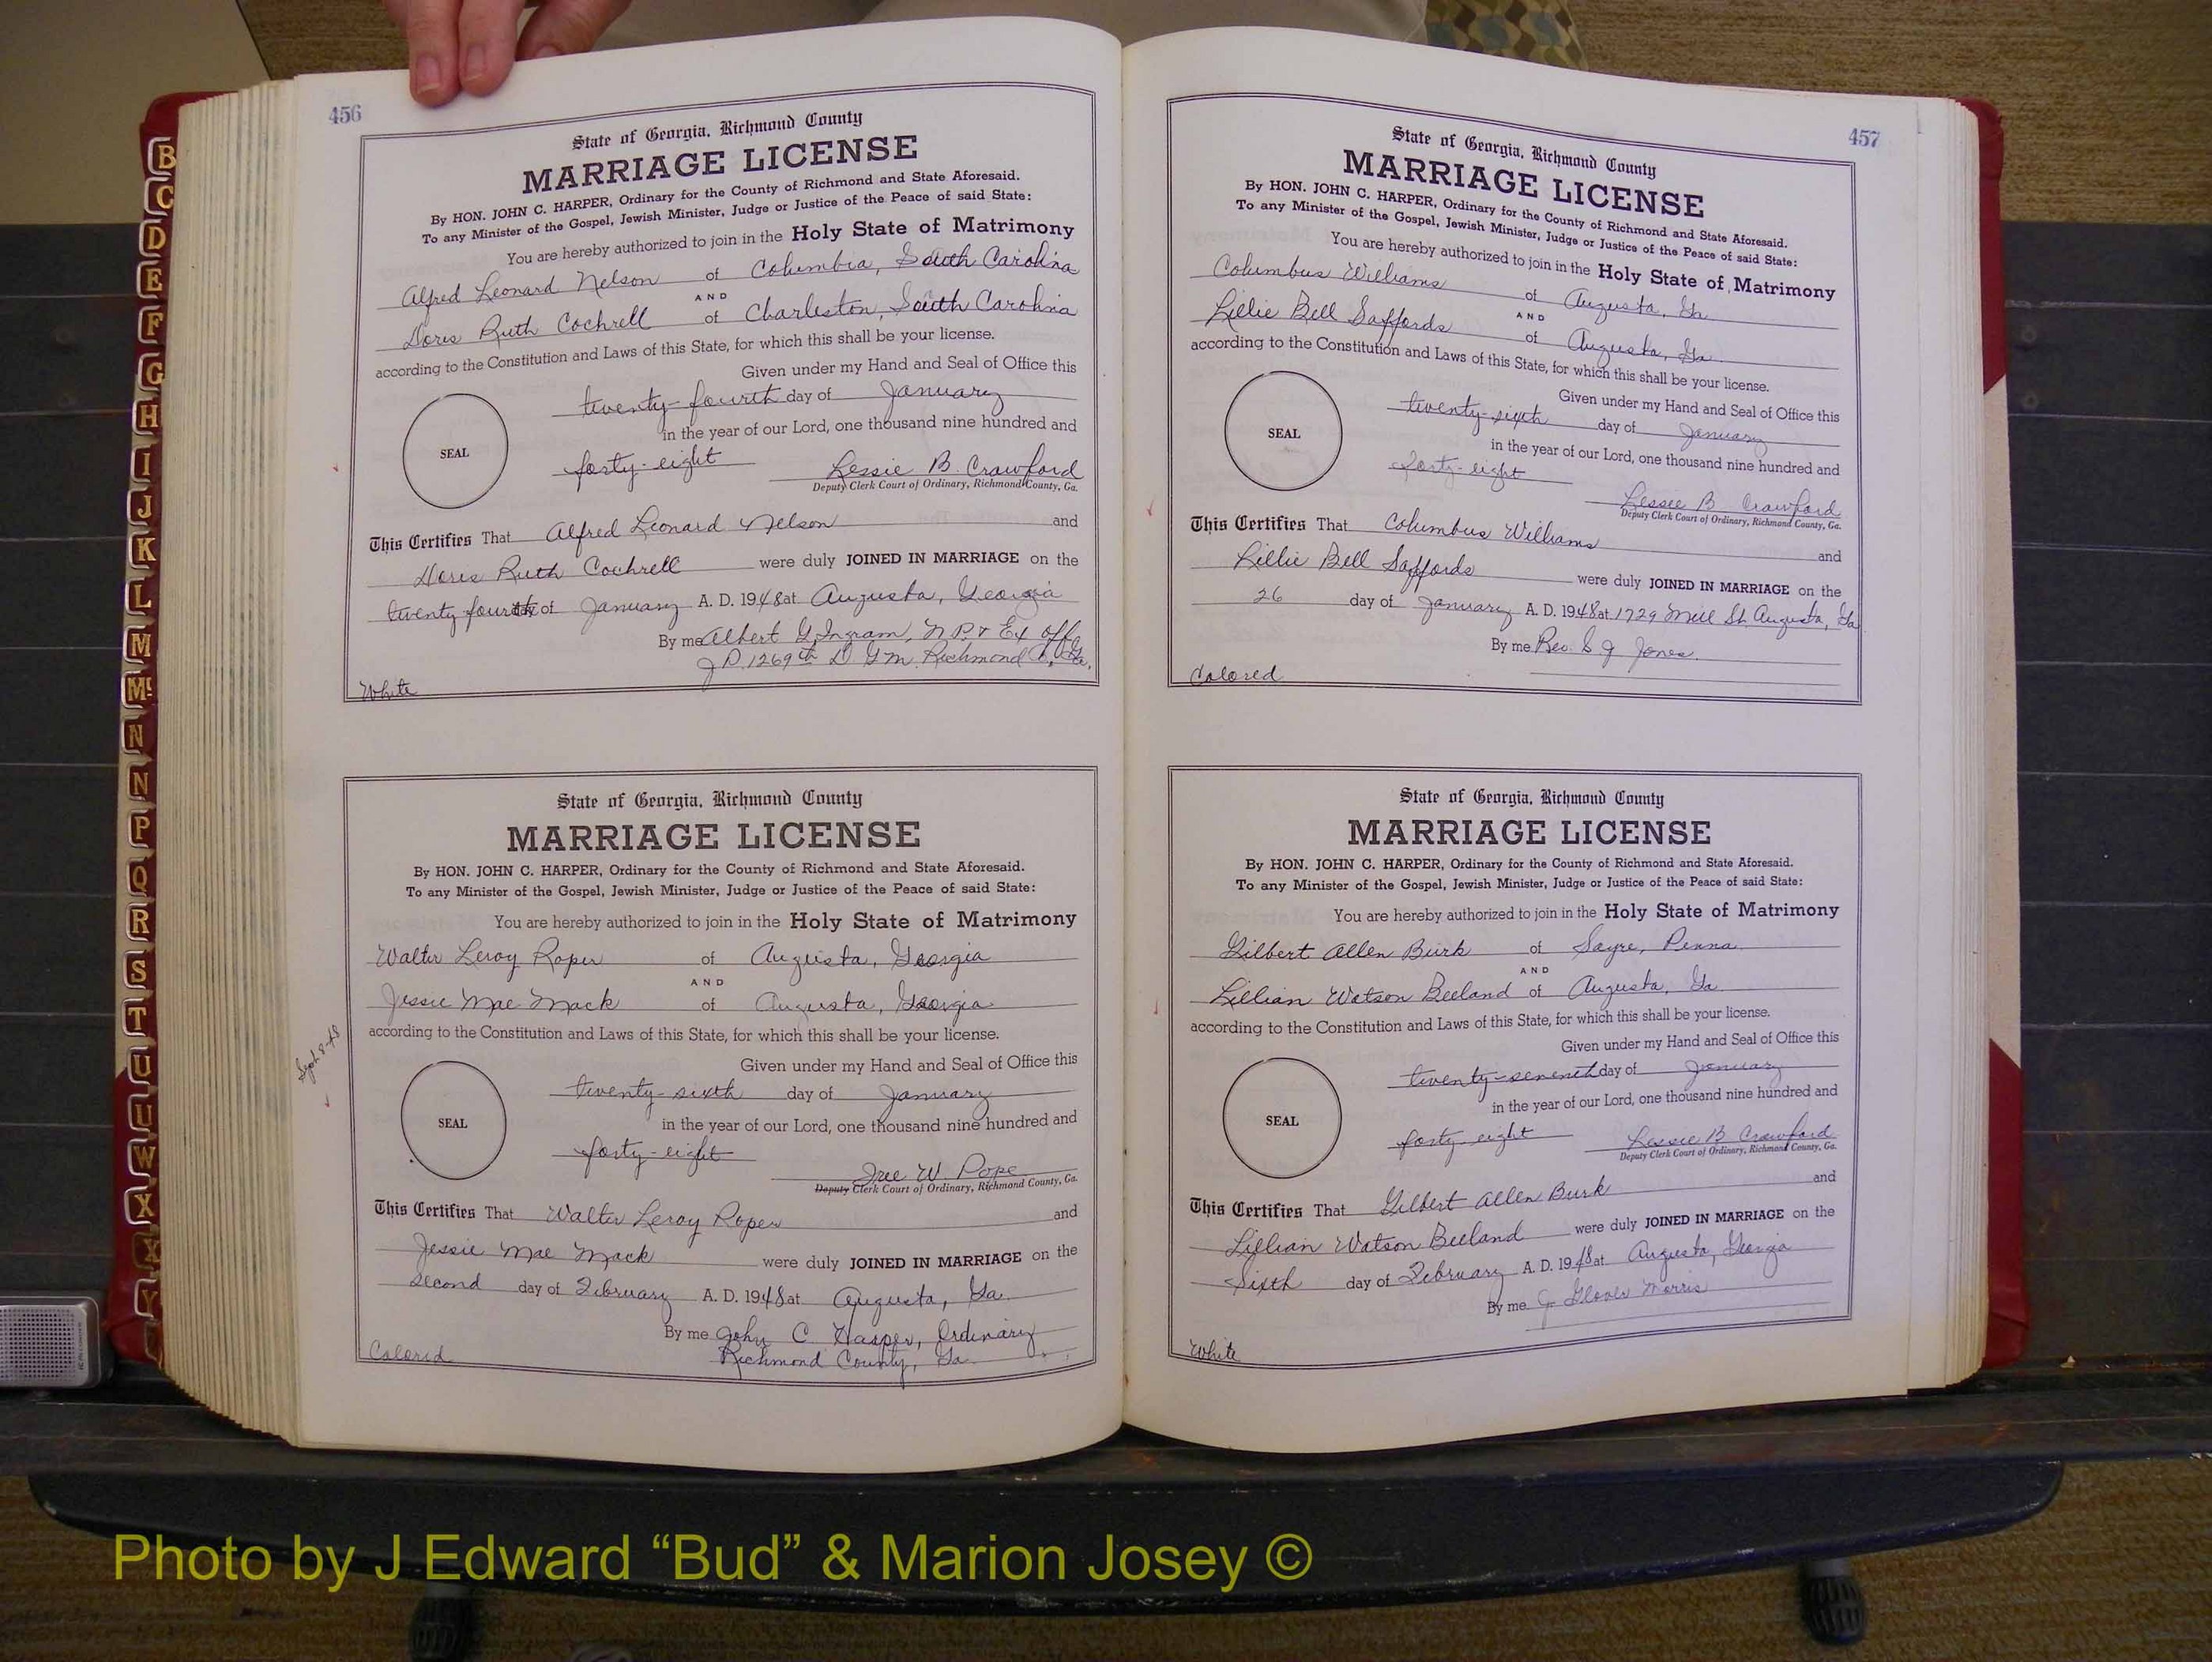 456
State of Georgia, Richmond County
MARRIAGE LICENSE
By HON. JOHN C. HARPER, Ordinary for the County of Richmond and State Aforesaid.
To any Minister of the Gospel, Jewish Minister, Judge or Justice of the Peace of said State:
You are hereby authorized to join in the Holy State of Matrimony
Alfred Leonard Nelson of Columbia, South Carolina
AND
Doris Ruth Cochrell of Charleston, South Carolina
according to the Constitution and Laws of this State, for which this shall be your license.
Given under my Hand and Seal of Office this
twenty-fourth day of January
in the year of our Lord, one thousand nine hundred and
SEAL
forty-eight Lessie B. Crawford
Deputy Clerk Court of Ordinary, Richmond County, Ga.
This Certifies That Alfred Leonard Nelson and
Doris Ruth Cochrell were duly JOINED IN MARRIAGE on the
twenty fourth day of January A. D. 1948 at Augusta, Georgia
By me Albert G. Ingram, N.P. & Ex off
J P. 1269th D G M. Richmond Co, Ga.
White
State of Georgia, Richmond County
MARRIAGE LICENSE
By HON. JOHN C. HARPER, Ordinary for the County of Richmond and State Aforesaid.
To any Minister of the Gospel, Jewish Minister, Judge or Justice of the Peace of said State:
You are hereby authorized to join in the Holy State of Matrimony
Walter Leroy Roper of Augusta, Georgia
AND
Jessie Mae Mack of Augusta, Georgia
according to the Constitution and Laws of this State, for which this shall be your license.
Sept 8-48
Given under my Hand and Seal of Office this
twenty-sixth day of January
in the year of our Lord, one thousand nine hundred and
SEAL
forty-eight W. Pope
Deputy Clerk Court of Ordinary, Richmond County, Ga.
This Certifies That Walter Leroy Roper and
Jessie Mae Mack were duly JOINED IN MARRIAGE on the
second day of February A. D. 1948 at Augusta, Ga.
By me John C. Harper, Ordinary
Richmond County, Ga.
Colored
457
State of Georgia, Richmond County
MARRIAGE LICENSE
By HON. JOHN C. HARPER, Ordinary for the County of Richmond and State Aforesaid.
To any Minister of the Gospel, Jewish Minister, Judge or Justice of the Peace of said State:
You are hereby authorized to join in the Holy State of Matrimony
Columbus Williams of Augusta, Ga
AND
Lillie Bell Saffords of Augusta, Ga.
according to the Constitution and Laws of this State, for which this shall be your license.
Given under my Hand and Seal of Office this
twenty-sixth day of January
in the year of our Lord, one thousand nine hundred and
SEAL
forty-eight
Lessie B Crawford
Deputy Clerk Court of Ordinary, Richmond County, Ga.
This Certifies That Columbus Williams and
Lillie Bell Saffords were duly JOINED IN MARRIAGE on the
26 day of January A. D. 1948 at 1729 Mill St. Augusta, Ga
By me Rev. S. J. Jones.
Colored
State of Georgia, Richmond County
MARRIAGE LICENSE
By HON. JOHN C. HARPER, Ordinary for the County of Richmond and State Aforesaid.
To any Minister of the Gospel, Jewish Minister, Judge or Justice of the Peace of said State:
You are hereby authorized to join in the Holy State of Matrimony
Gilbert Allen Burk of Sayre, Penna.
AND
Lillian Watson Beeland of Augusta, Ga
according to the Constitution and Laws of this State, for which this shall be your license.
Given under my Hand and Seal of Office this
twenty-seventh day of January
in the year of our Lord, one thousand nine hundred and
SEAL
forty-eight Lessie B. Crawford
Deputy Clerk Court of Ordinary, Richmond County, Ga.
This Certifies That Gilbert Allen Burk and
Lillian Watson Beeland were duly JOINED IN MARRIAGE on the
Sixth day of February A. D. 1948 at Augusta, Georgia
By me J. Glover Morris
White
B
C
D
E
F
G
H
I
J
K
L
M
Mc
N
N
P
Q
R
S
T
U
U
W
X
X
Y
Photo by J Edward “Bud” & Marion Josey ©